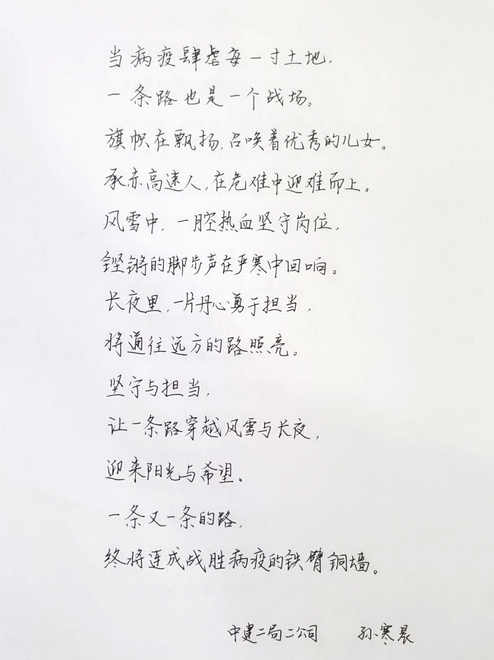 当病疫肆虐每一寸土地，
一条路也是一个战场。
旗帜在飘扬，召唤着优秀的儿女。
承赤高速人，在危难中迎难而上。
风雪中，一腔热血坚守岗位，
铿锵的脚步声在严寒中回响。
长夜里，一片丹心勇于担当，
将通往远方的路照亮。
坚守与担当，
让一条路穿越风雪与长夜，
迎来阳光与希望。
一条又一条的路，
终将连成战胜病疫的铁臂铜墙。
中建二局二公司 孙寒晨